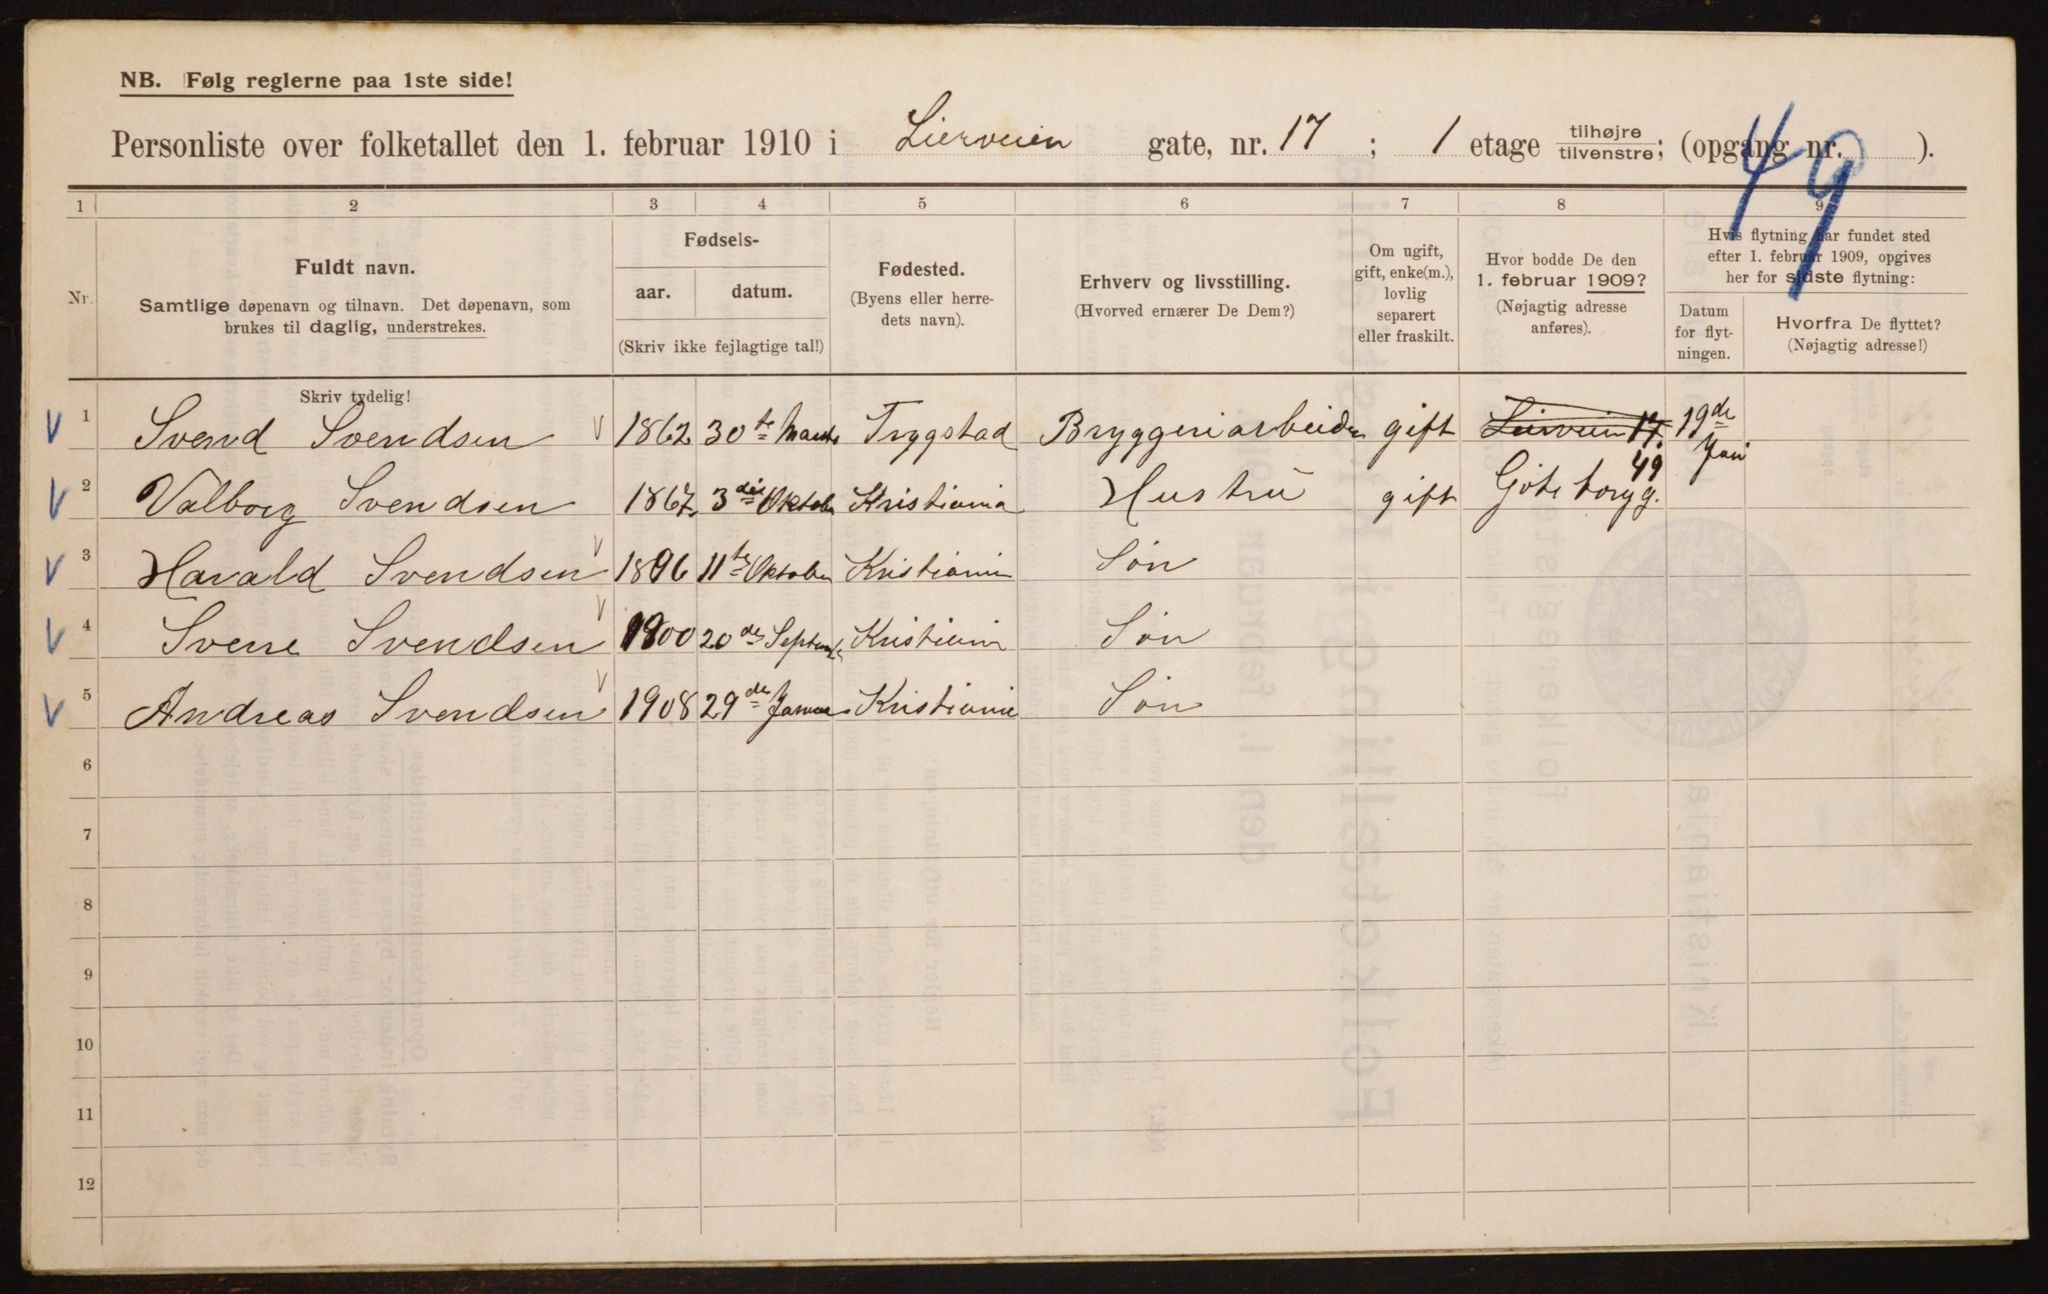 NB. Følg reglerne paa 1ste side!
Personliste over folketallet den 1. februar 1910 i Lierveien gate, nr. 17 ; 1 etage tilhøjre tilvenstre; (opgang nr. ).
49
1 2 3 4 5 6 7 8 9
Nr.
Fuldt navn.
Samtlige døpenavn og tilnavn. Det døpenavn, som
brukes til daglig, understrekes.
Skriv tydelig!
Fødsels-
aar. datum.
(Skriv ikke fejlagtige tal!)
Fødested.
(Byens eller herre-
dets navn).
Erhverv og livsstilling.
(Hvorved ernærer De Dem?)
Om ugift,
gift, enke(m.),
lovlig
separert
eller fraskilt.
Hvor bodde De den
1. februar 1909?
(Nøjagtig adresse
anføres).
Hvis flytning har fundet sted
efter 1. februar 1909, opgives
her for sidste flytning:
Datum
for flyt-
ningen.
Hvorfra De flyttet?
(Nøjagtig adresse!)
1 Svend Svendsen 1862 30te Marts Trygstad Bryggeriarbeider gift Lierveien 17. 19de Jan
2 Valborg Svendsen 1867 3die Oktober Kristiania Hustru gift Göteborgg. 49
3 Harald Svendsen 1896 11te Oktober Kristiania Søn
4 Sverre Svendsen 1900 20de Septemb Kristiania Søn
5 Andreas Svendsen 1908 29de Januar Kristiania Søn
6
7
8
9
10
11
12